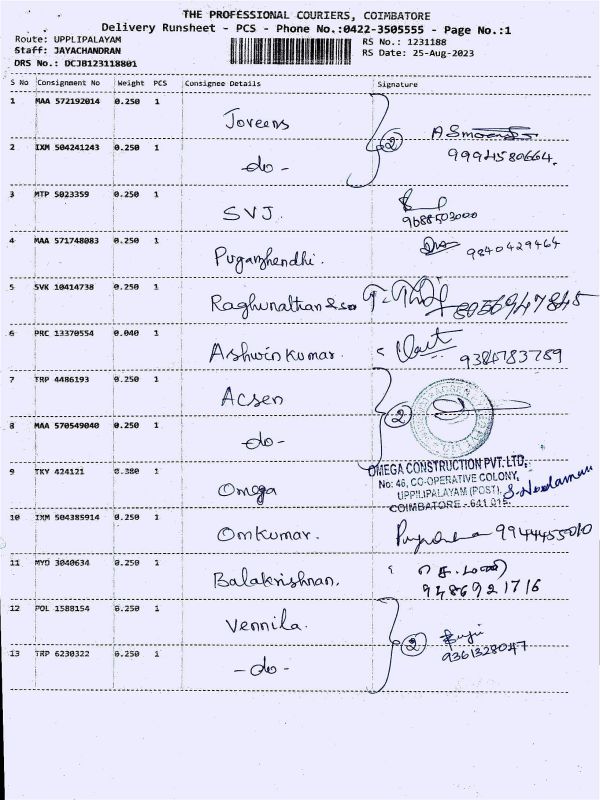 THE PROFESSIONAL COURIERS, COIMBATORE
Delivery Runsheet - PCS - Phone No.:0422-3505555 - Page No.:1
Route: UPPLIPALAYAM
Staff: JAYACHANDRAN
DRS No.: DCJB123118801
RS No.: 1231188
RS Date: 25-Aug-2023
S No Consignment No Weight PCS Consignee Details Signature
1 MAA 572192014 0.250 1 Joveens
2 IXM 504241243 0.250 1 -do- 2 9994580664.
3 MTP 5023359 0.250 1 SVJ. 9688503000
4 MAA 571748083 0.250 1 Pugazhendhi. 9840429464
5 SVK 10414738 0.250 1 Raghunathan & so 8056947845
6 PRC 13370554 0.040 1 Ashwin Kumar. 9384783789
7 TRP 4486193 0.250 1 Acsen
8 MAA 570549040 0.250 1 -do- 2
9 TKY 424121 0.380 1 Omega
OMEGA CONSTRUCTION PVT. LTD,
No: 46, CO-OPERATIVE COLONY,
UPPILIPALAYAM (POST),
COIMBATORE - 641 015.
10 IXM 504385914 0.250 1 Omkumar. 9944455010
11 MYD 3040634 0.250 1 Balakrishnan. 9486921716
12 POL 1588154 0.250 1 Vennila.
13 TRP 6230322 0.250 1 -do- 2 9361328047